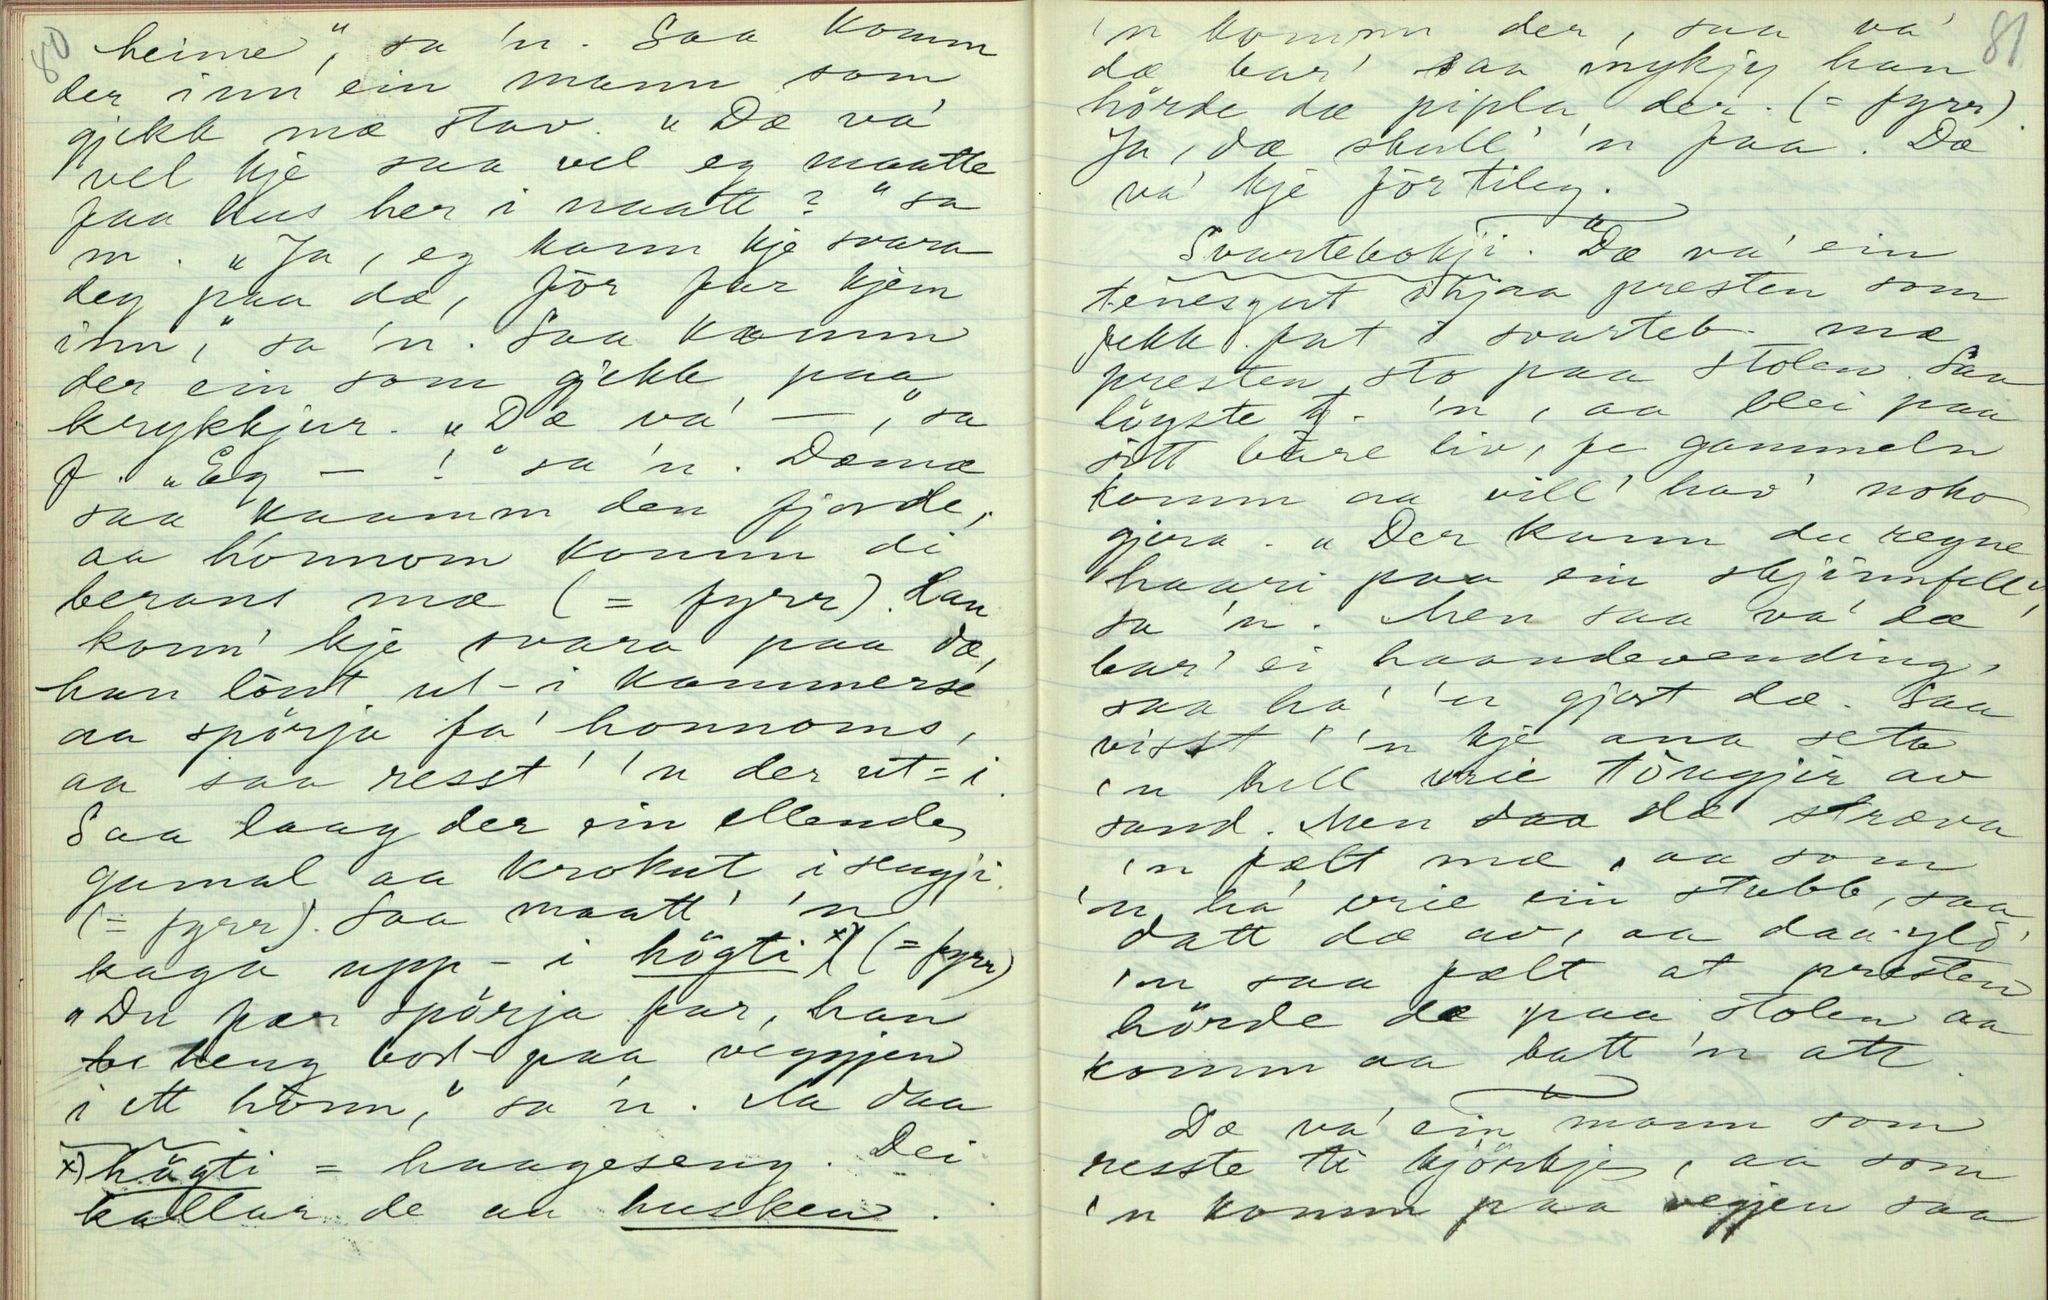 80
heime", sa 'n. Saa komm
der inn ein mann som
gjekk mæ stav. "Dæ va'
vel kje saa vel eg maatte
faa hus her i naatt?" sa
m. "Ja, eg kann kje svara
deg paa dæ, för far kjem
inn," sa 'n. Saa komm
der ein som gjekk paa
krykkjur. "Dæ va' —," sa
f. "Eg — !" sa 'n. Dæmæ
saa kaamm den fjorde,
aa honnom komm di
berans mæ (= fyrr). Han
konn' kje svara paa dæ,
han lönt ut-i kammerse
aa spörja fa' honnoms,
aa saa resst' 'n der ut-i.
Saa laag der ein ellende
gamal aa krokut i sengji
(= fyrr). Saa maatt' 'n
kaga upp-i högti x) (= fyrr)
"Du fær spörja far, han
heng bort paa veggjen
i ett honn," sa 'n. Aa daa
x) högti = haageseng. Dei
kallar de au husken.
81
'n komm der, saa va'
dæ bar' saa mykjy han
hörde dæ pipla der. (= fyrr).
Ja, dæ skull' 'n faa. Dæ
va' kje för tileg.
"
Svartebokji. Dæ va' ein
tenesgut hjaa presten som
fekk fat i svarteb. mæ
presten sto paa stolen. Saa
löyste g. 'n, aa blei paa
sitt bare liv, fe gammeln
komm aa vill' hav' noko
gjera. "Der kann du regne
haari paa ein skjinnfell",
sa 'n. Men saa va' dæ
bar' ei haandevending,
saa ha' 'n gjort dæ. Saa
visst' 'n kje ana seta
'n till vrie töugjir av
sand. Men dæ stræva
'n fælt mæ, aa som
'n ha' vrie ein stubb, saa
datt dæ av, aa daa ylö'
'n saa fælt at presten
hörde dæ paa stolen aa
komm aa batt 'n att.
"
Dæ va' ein mann som
resste ti kjörkje, aa som
'n komm paa vegjen saa